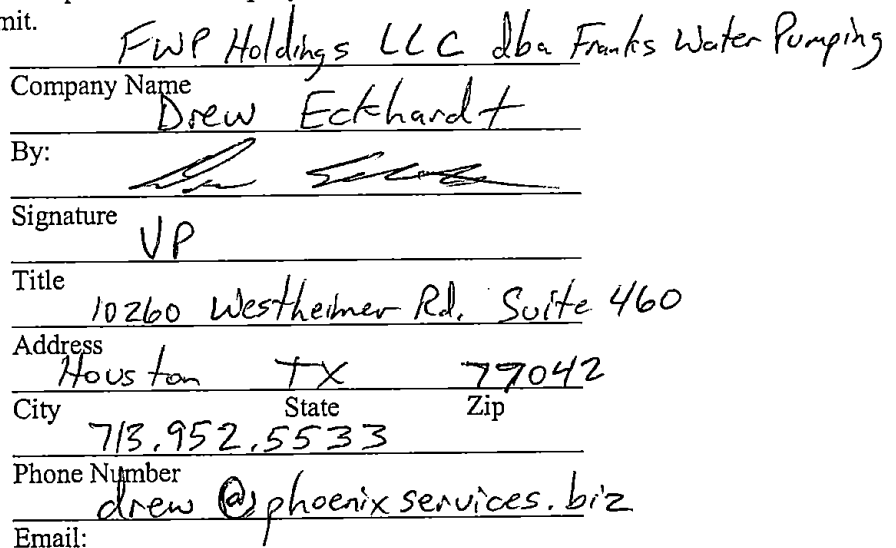 mit.
FWP Holdings LLC dba Franks Water Pumping
Company Name
Drew Eckhardt
By:
Signature
VP
Title
10260 Westheimer Rd. Suite 460
Address
Houston TX 77042
City State Zip
713.952.5533
Phone Number
drew @ phoenixservices.biz
Email: